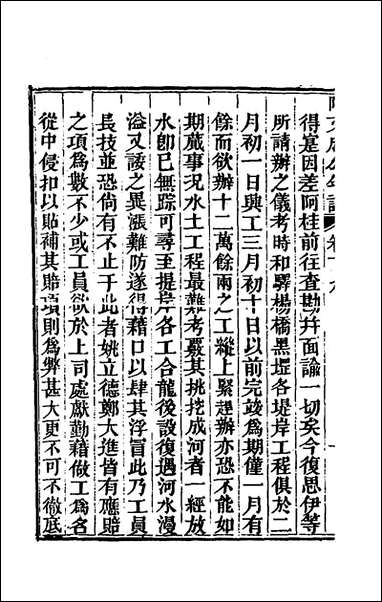 阿文成公年譜 卷十九
得寔因差阿桂前往查勘幷面諭一切矣今復思伊等
所請辦之儀考時和驛楊橋黑堽各堤岸工程俱於二
月初一日興工三月初十日以前完竣爲期僅一月有
餘而欲辦十二萬餘兩之工縱上緊趕辦亦恐不能如
期蕆事況水土工程最難考覈其挑挖成河者一經放
水卽已無踪可尋至堤岸各工合龍後設復遇河水漫
溢又諉之異漲難防遂得藉口以肆其浮冒此乃工員
長技並恐尙有不止于此者姚立德鄭大進皆有應賠
之項爲數不少或工員欲於上司處獻勤藉做工爲名
從中侵扣以貼補其賠項則爲弊甚大更不可不徹底